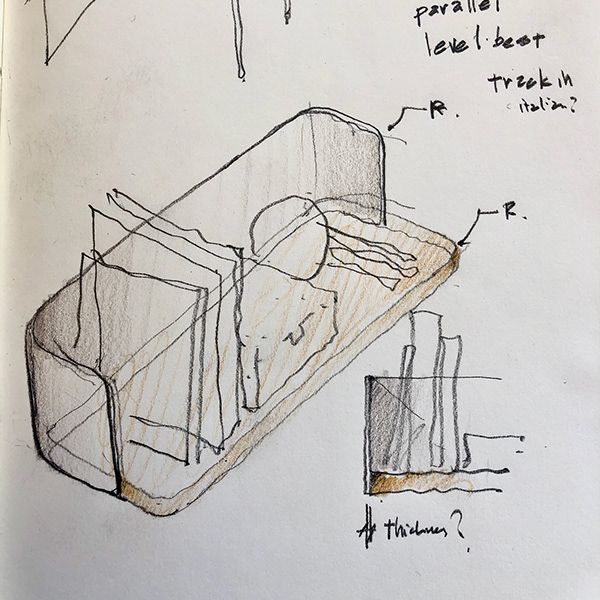 parallel
level best
track in
italian?
R.
R.
# thickness?